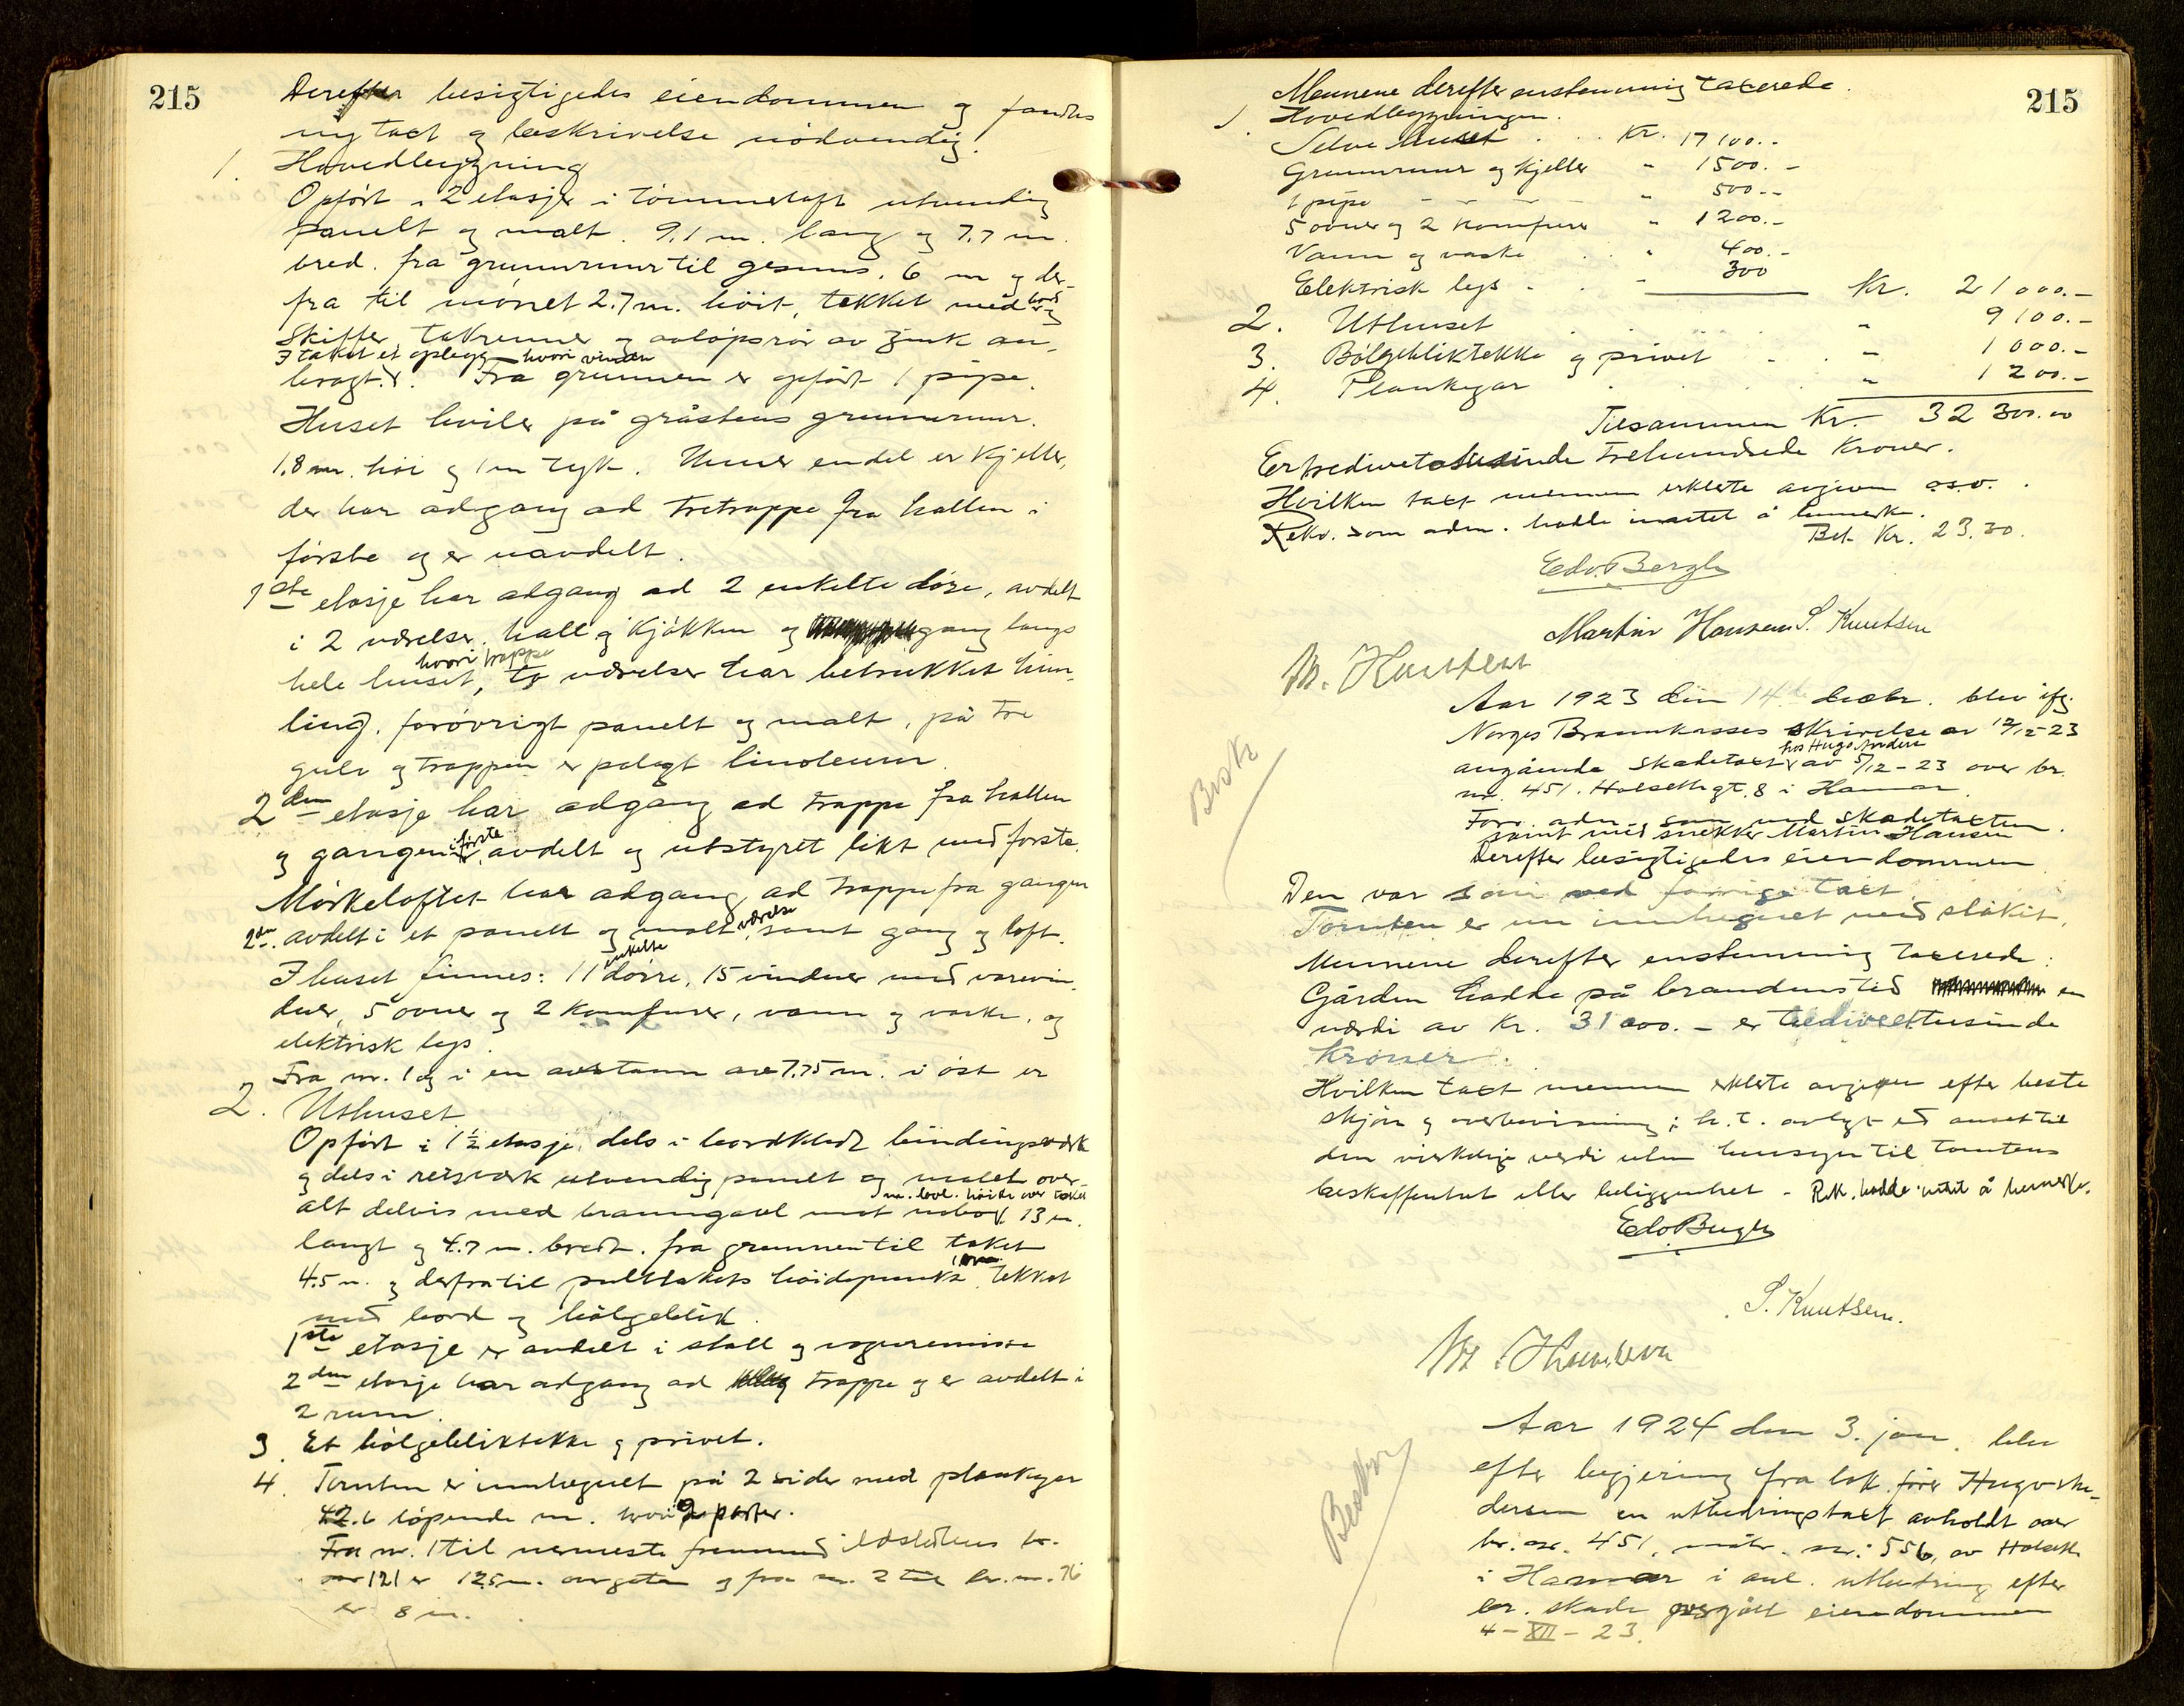 215
Derefter besigtigedes eiendommen og fandtes
ny taxt og beskrivelse nödvendig.
1. Hovedbygning
Opfört i 2 etasjer i tömmerloft utvendig
panelt og malt. 9,1 m. lang og 7,7 m.
bred. fra grunnmur til gesims. 6 m og der-
fra til mönet 2.7 m. höit, tekket med bord og
Skiffer, takrenner og avlöpsrör av zink an-
I taket et oplegg hvori vinduer
bragt. Fra grunnen er opfört 1 pipe.
Huset hviler på gråstens grunnmur.
1.8 m. höi og 1 m tyk. Unner endel er Kjeller,
der har adgang ad tretrappe fra hallen i
förste og er uavdelt.
1ste etasje har adgang ad 2 enkelte döre, avdelt
i 2 værelser, hall og Kjökken og gang langs
hvori trappe
hele huset, to værelser har betrukket him-
ling. forövrigt panelt og malt, på tre
gulv og trappen er pålagt linoleum.
2den etasje har adgang ad trappe fra hallen
og gangen i förste avdelt og utstyret likt med förste.
Mörkeloftet har adgang ad trappe fra gangen
2den avdelt i et panelt og malt værelse samt gang og loft.
I huset finnes: 11 enkelte dörre, 15 vinduer med varevin-
duer, 5 ovner og 2 Komfurer, vann og vaske, og
elektrisk lys.
Fra nr. 1 og i en avstann av 7.75 m. i öst er
2. Uthuset.
Opfört i 1½ etasje, dels i bordklædt bindingsverk
og dels i reisverk utvendig panelt og malet over-
alt delvis med branngavl mot nabo 13 m.
langt og 4.7 m. bredt. fra grunnen til taket
4.5 m. og derfra til pulttakets höidepunkt 1 m. tekket
med bord og bölgeblik.
1ste etasje er avdelt i stall og vognremisse
2den etasje har adgang ad trappe og er avdelt i
2 rum.
3. Et bölgebliktekke og privet.
4. Tomten er innhegnet på 2 sider med plankegar
42.6 löpende m. hvori 2 porter.
Fra nr. 1 til nermeste fremmed ildsted br.
nr 121 er 12.5 m. over gaten og fra nr. 2 til br. nr. 76
er 8 m.
215
Mennene derefter enstemmig taxerede.
1. Hovedbygningen.
Selve huset . . Kr. 17100.-
Grunnmur og kjeller " 1500.-
1 pipe " 500.-
5 ovner og 2 komfurer " 1200.-
Vann og vaske " 400.-
Elektrisk lys " 300 Kr. 21000.-
2. Uthuset " 9100.-
3. Bölgebliktekke og privet " 1000.-
4. Plankegar " 1200.-
Tilsammen Kr. 32300.00
Er tredivetotusinde trehundrede Kroner.
Hvilken taxt mennene erklærte avgiven o.s.v.
Rekv. som adm. hadde intet å bemerke.
Bet. Kr. 23.30.
Edv. Bergh
Martin Hansen S. Knutsen
Aar 1923 den 14. decbr. blev ifg.
Norges Brannkasses skrivelse av 12/12-23
angående skadetaxt hos Hugo Andersen av 5/12-23 over br.
nr. 451. Holsethgt. 8 i Hamar.
Forr. adm. som med skadetaxten.
samt med snekker Martin Hansen
Derefter besigtigedes eiendommen
Den var som ved forrige taxt.
Tomten er nu innhegnet med stakit.
Mennene derefter enstemmig taxerede:
Gården hadde på brandens tid en
værdi av Kr. 31000.- er trediveettusinde
Kroner.
Hvilken taxt mennene erklærte avgiven efter beste
skjön og overbevisning i h.t. avlagt ed ansett til
den virkelige verdi uten hensyn til tomtens
beskaffenhet eller beliggenhet - Rek. hadde intet å bemerke.
Edv Bergh
S. Knutsen.
Aar 1924 den 3. jan. blev
efter begjæring fra lok. förer Hugo An-
dersen en utbedringstaxt avholdt over
br. nr. 451, matr. nr. 556, av Holseth
i Hamar i anl. utbedring efter
br. skade overgått eiendommen
4-XII-23.